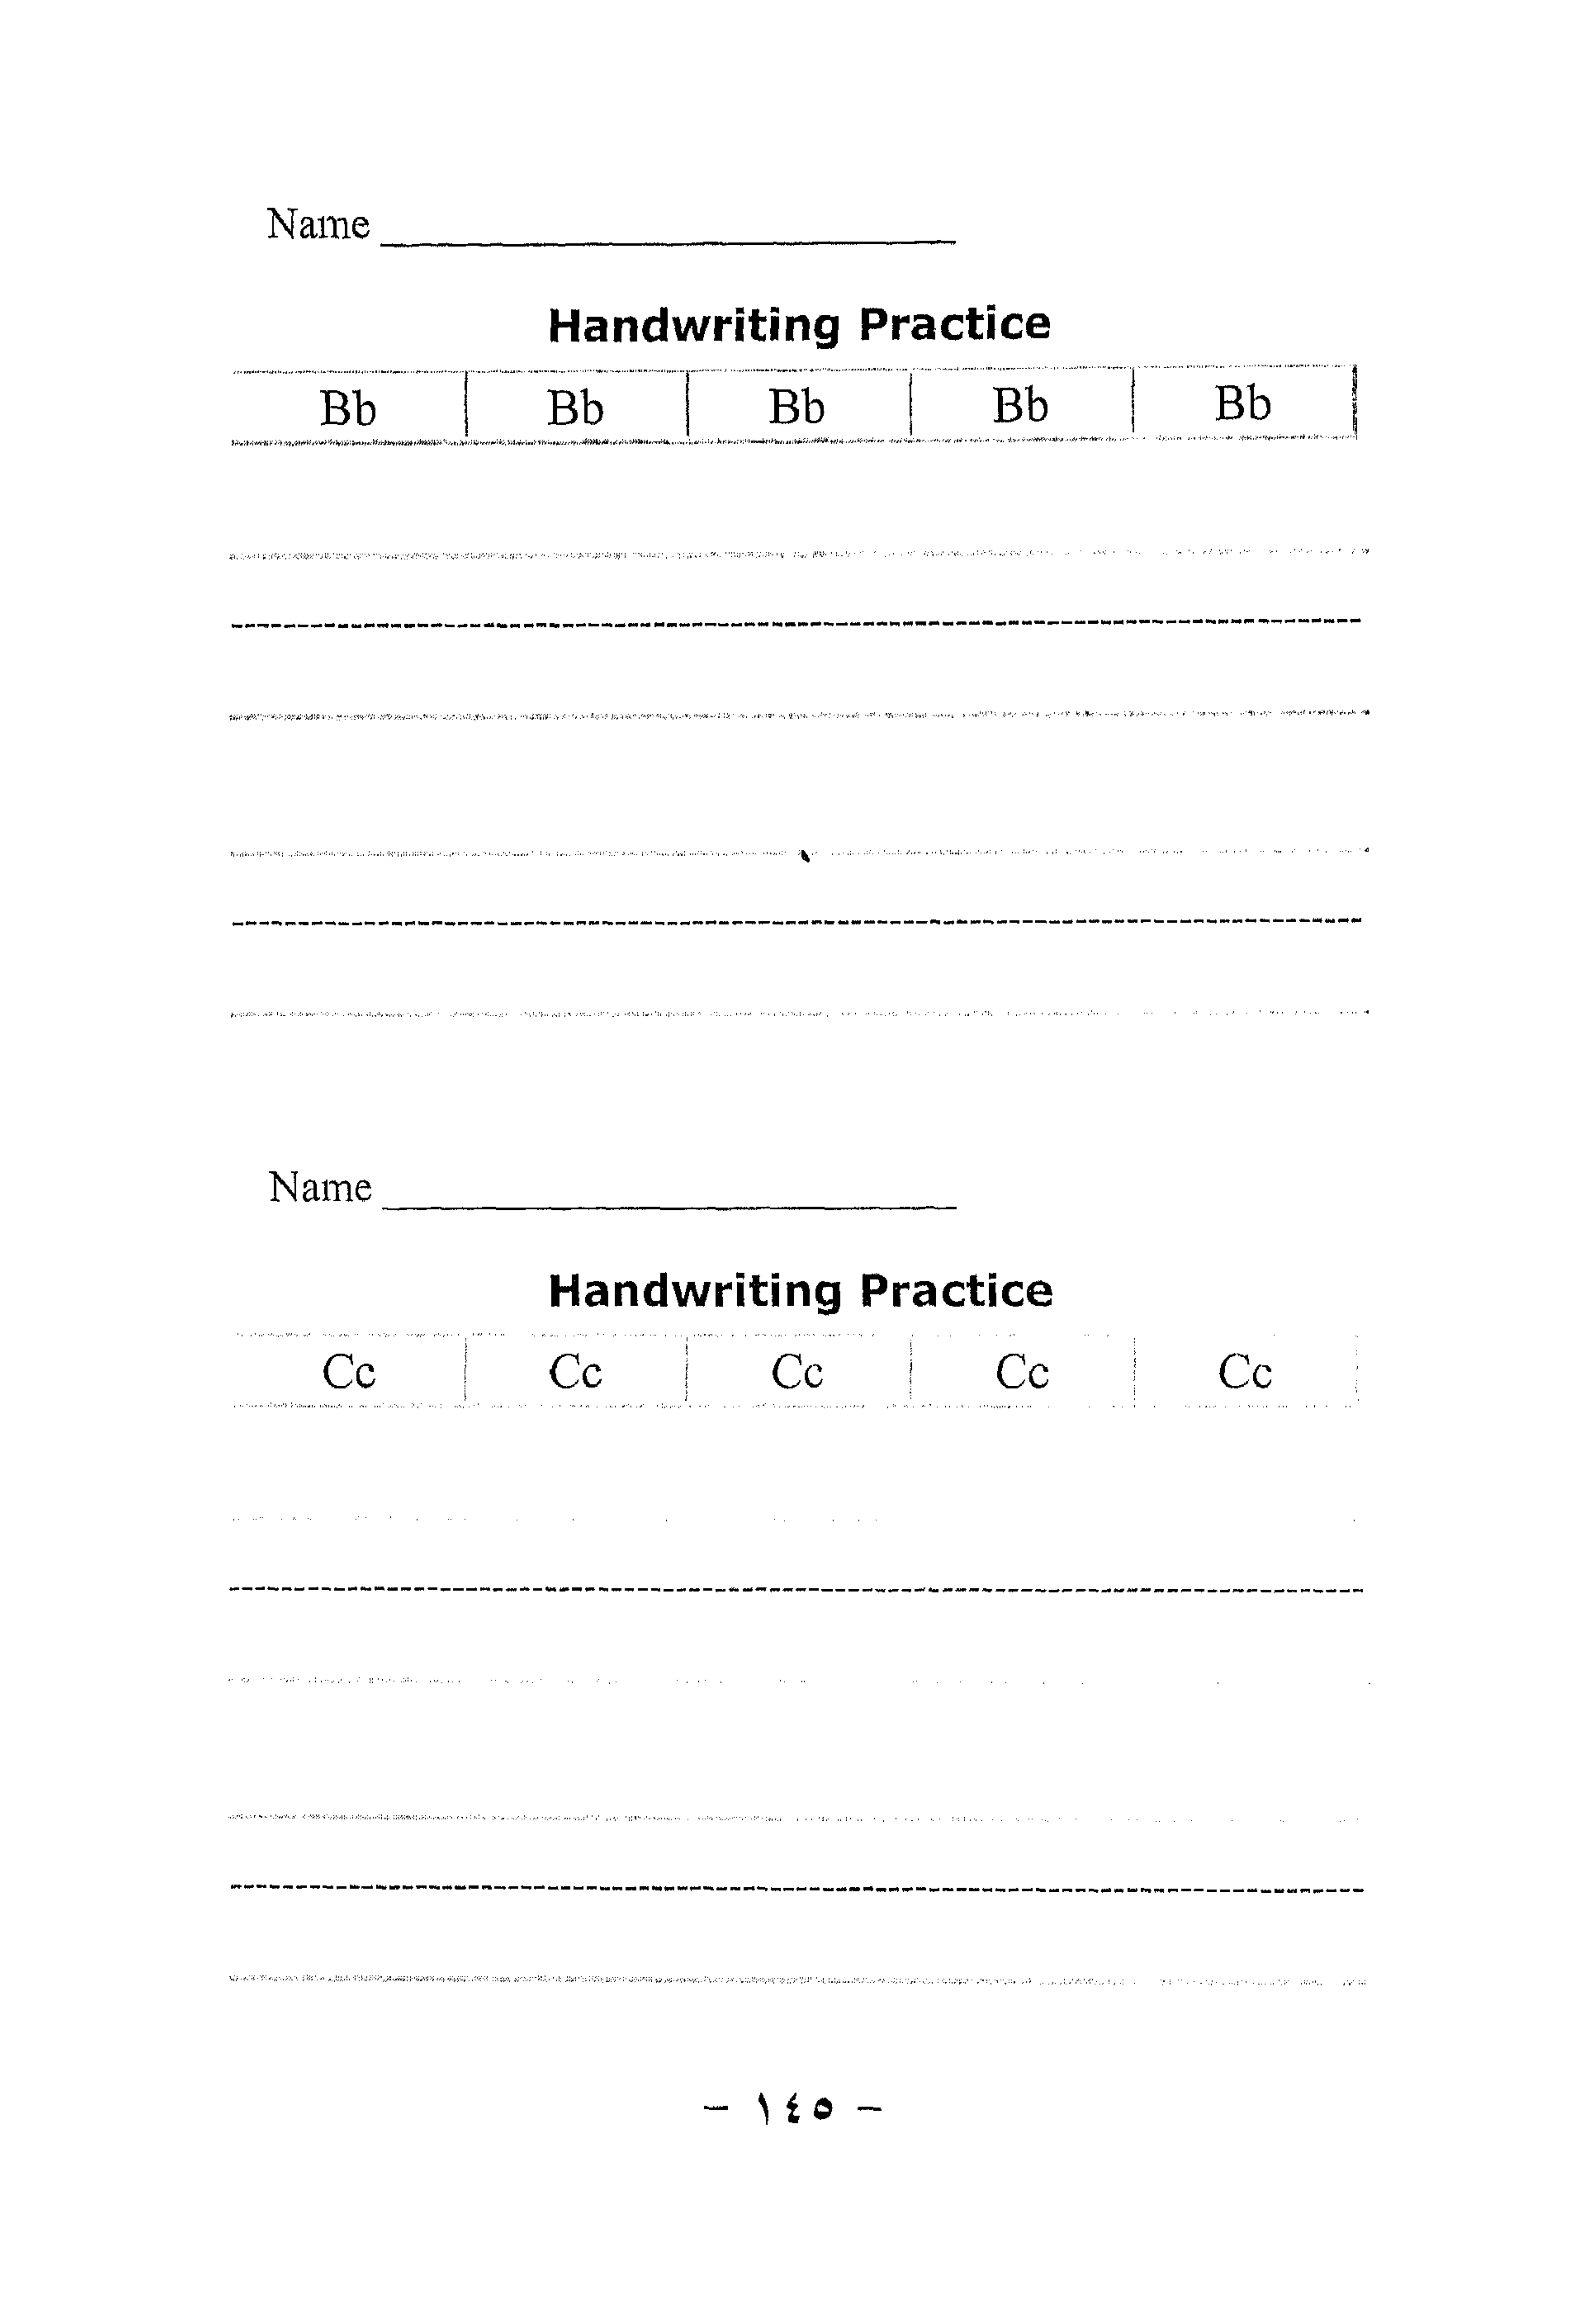 Name
Handwriting Practice
Bb Bb Bb Bb Bb
Name
Handwriting Practice
Cc Cc Cc Cc Cc
- ١٤٥ -